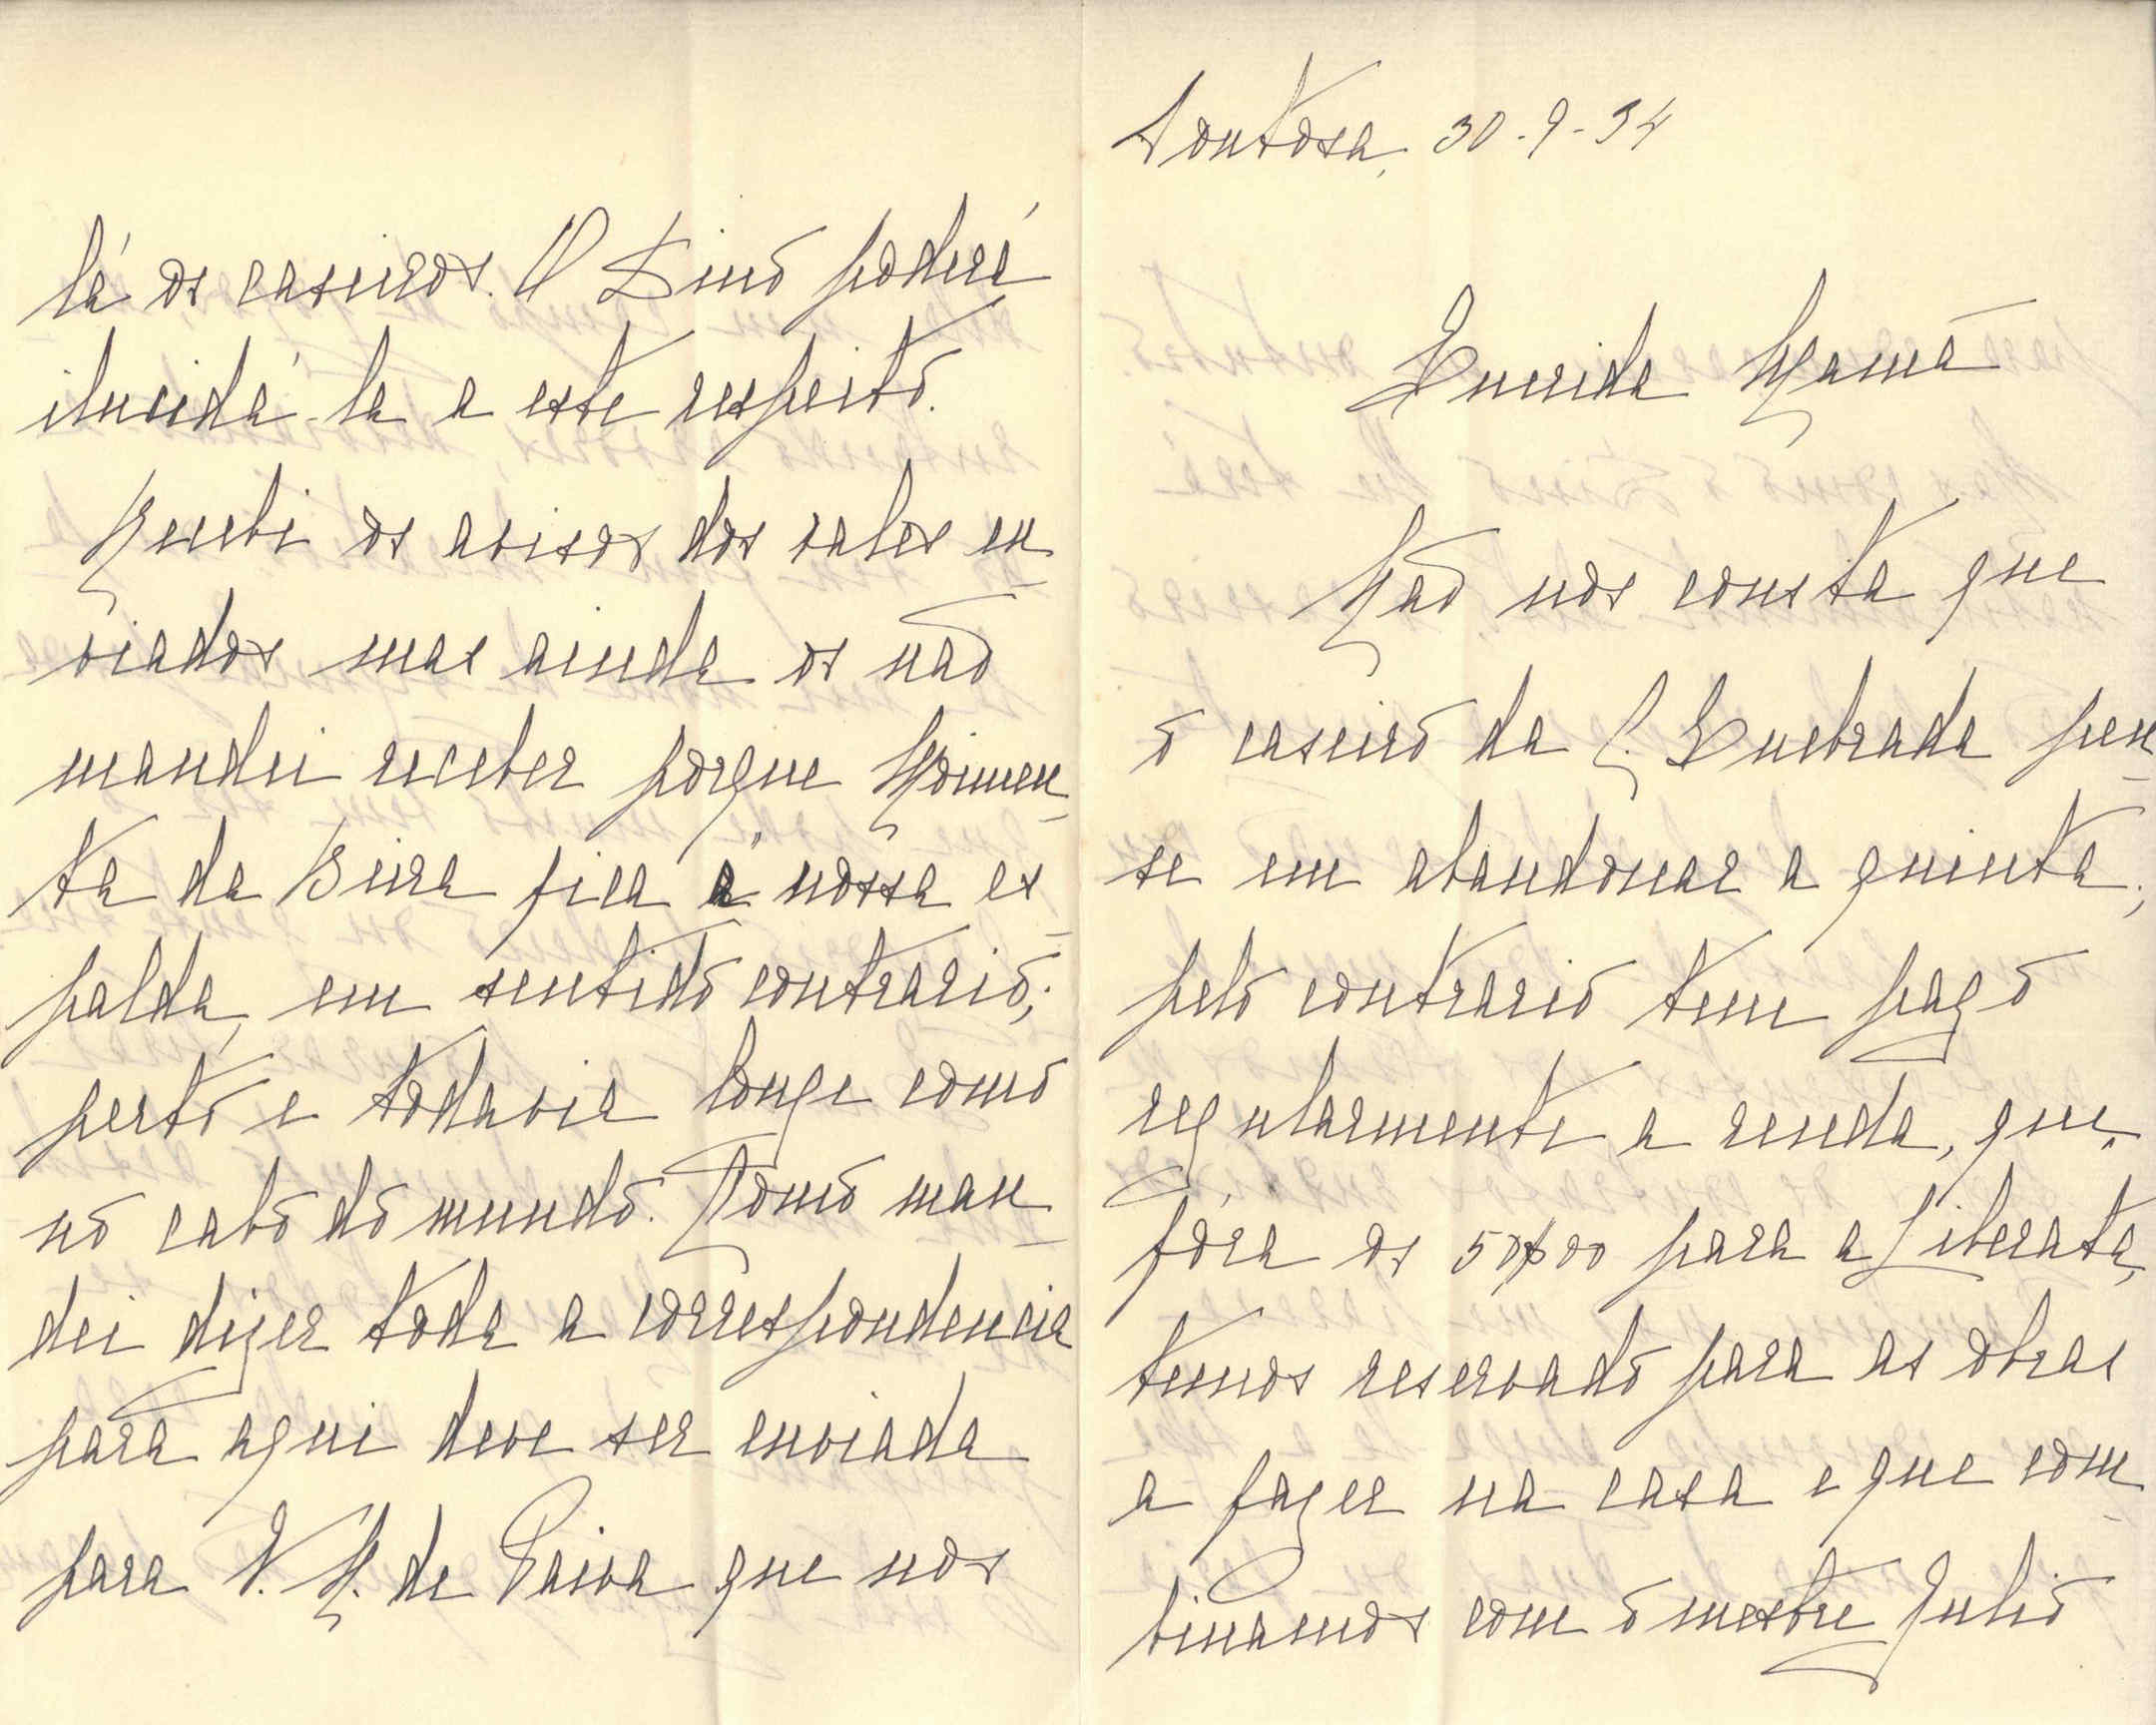 Soutosa, 30-9-34
Querida Mamã
Não nos consta que
o caseiro da C. Quebrada pen-
se em abandonar a quinta;
pelo contrario tem pago
regularmente a renda, que,
fóra os 50$00 para a Liberata,
temos reservado para as obras
a fazer na casa e que com-
binamos com o mestre Julio
lá os caseiros. O Dino poderá
ilucidá-la a este respeito.
Recebi os avisos dos vales en-
viados mas ainda os não
mandei receber porque Moimen-
ta da Beira fica á nossa es-
palda, em sentido contrario;
perto e todavia longe como
no cabo do mundo. Como man-
dei dizer toda a correspondencia
para aqui deve ser enviada
para V. N. de Paiva que nos